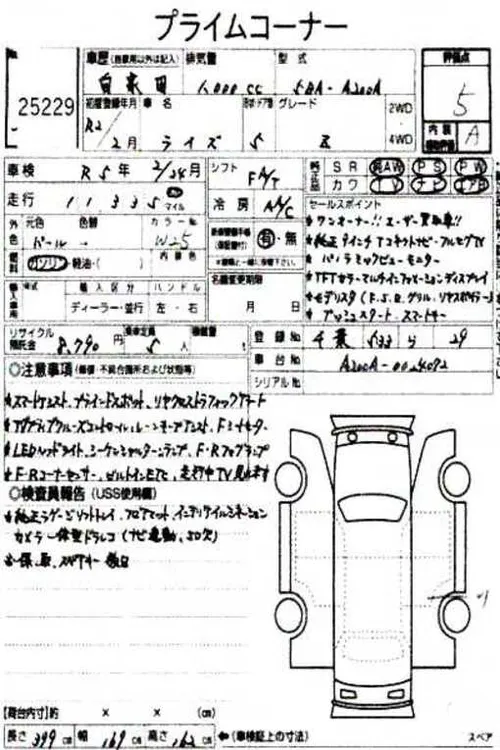 プライムコーナー
No. 25229
車歴 (自家用以外は記入) 自家用
排気量 1,000 cc
型式 5BA-A200A
評価点 5
内装 A
初度登録年月 R2/2月
車名 ライズ
ドア数 5
グレード Z
2WD
4WD
車検 R5年 2/24月
走行 11335 マイル
シフト FA/T
冷房 A/C
純正品 SR AW PS PW
カワ TV ナビ エアB
外色 元色 パール
色替 →
カラーNo. W25
内装色
燃料 ガソリン・軽油・( )
有・無
名義変更期限
月 日
セールスポイント
★ワンオーナー!! ユーザー買取車!!
★純正9インチTコネクトナビ・フルセグTV
★パノラミックビューモニター
★TFTカラーマルチインフォメーションディスプレイ
★モデリスタ(F.S.R.グリル、リヤスポイラー)
★プッシュスタート、スマートキー
輸入車用 年式
輸入区分 ディーラー・並行
ハンドル 左・右
リサイクル預託金 8,790円
乗車定員 5人
積載量 t
登録No. 千葉 533 ら 29
車台No. A200A-0024092
シリアルNo.
◎注意事項 (修復・不具合箇所および状態等)
★スマートアシスト、ブラインドスポット、リヤクロストラフィックアラート
★アダプティブクルーズコントロール、レーンキープアシスト、Fシートヒーター
★LEDヘッドライト、シーケンシャルターンランプ、F・Rフォグランプ
★F・Rコーナーセンサー、ビルトインETC、走行中TV見れます
◎検査員報告 (USS使用欄)
★純正ラゲージソフトトレイ、フロアマット、インテリアイルミネーション
カメラ一体型ドラレコ(ナビ連動、SD欠)
☆保、取、スペアキー 後日
【荷台内寸】約 × × (cm)
長さ 399 cm 幅 169 cm 高さ 162 cm ←(車検証上の寸法)
スペア